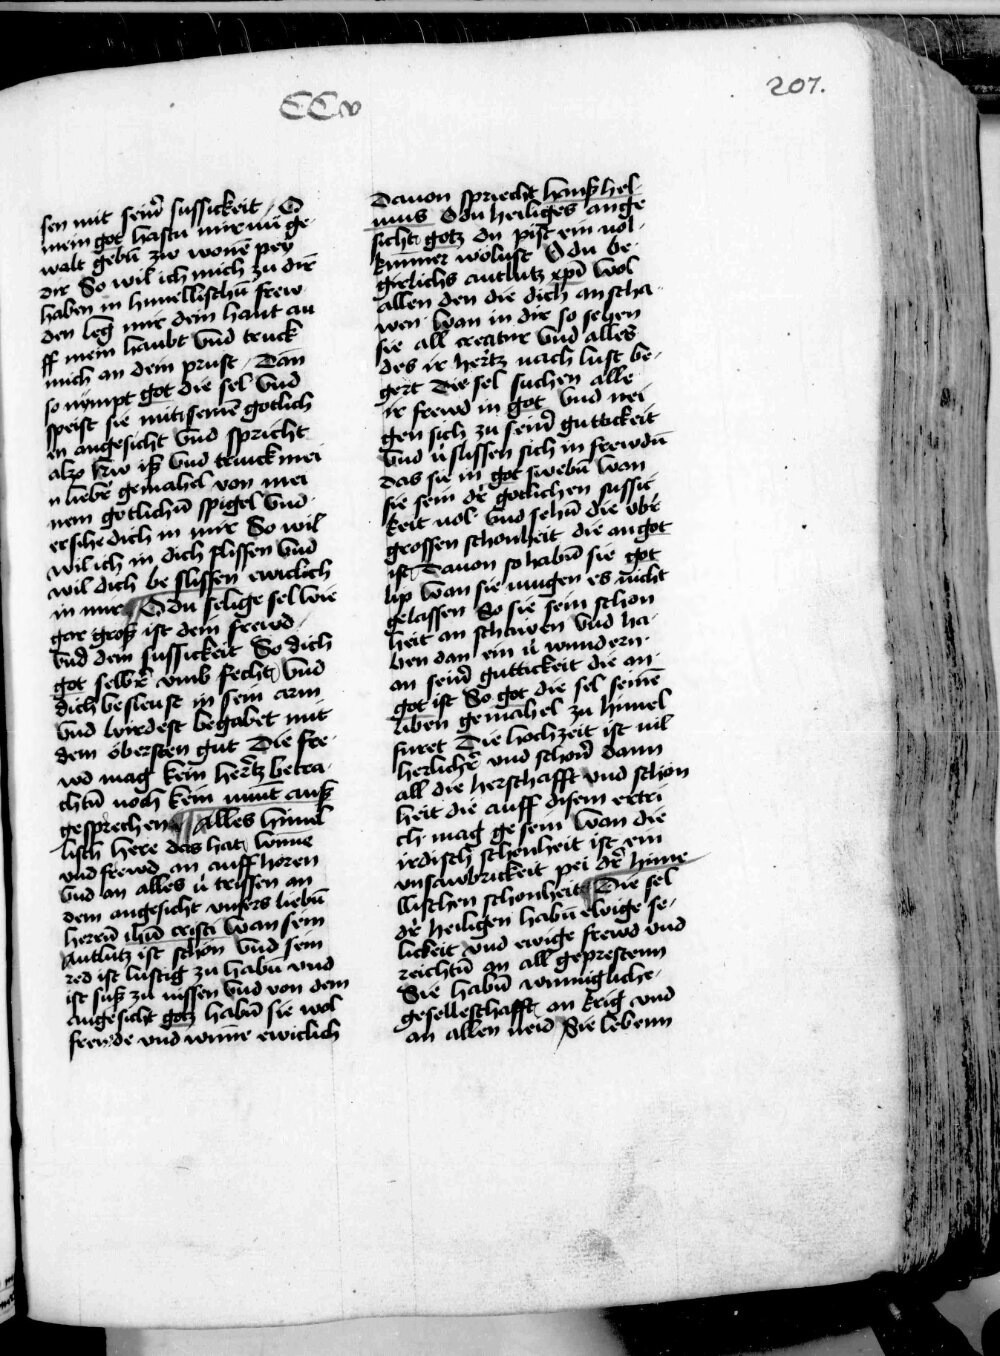 CCv
207.
sen mit seim̄ sussickeit / O
mein got hastu mir nū ge-
walt gebn̄ zw wonē pey
dir So wil ich mich zu dir
haben in himellischn̄ frew-
den leg mir dein hant au
ff mein haubt vnd truck
mich an dein prust / Dan
so nympt got die sel vnd
speist sie mit seinē gotlich
en angesicht vnd spricht
also hie iß vnd trinck mei
n liebē gemahel von mei
nem gotlichn̄ spigel vnd
ersihe dich in mir So wil
wil ich in dich flissen vnd
wil dich be slissen ewiclich
in mir O du selige sel wie
gar groß ist dein frewd
vnd dein sussickeit So dich
got selbē vmb fecht vnd
dich besleust in sein arm
vnd wirdest begabet mit
dem obersten gut Die fre-
wd mag kein hertz betra-
chtn̄ noch kein munt auß
gesprechen Alles himel
lisch here das hat wune
vnd frewd an auff horen
vnd an alles v̄ trissen an
dem angesicht vnsers liebn̄
heren̄ ihū cristi wan sein
Antlutz ist schon vnd sein
red ist lustig zu habn̄ vnd
ist suß zu nissen vnd von dem
angesicht gotz habn̄ sie wol
frewde vnd wune ewiclich
Dauon spriecht hanß hel-
mus O du heiliges ange
sicht gotz du pist ein vol-
kumner wolust O du be-
girlichs antlutz xp̄i wol
allen den die dich anscha-
wen wan in dir so sehen
sie all creatur vnd alles
des ir hertz nach lust be-
gert Die sel suchen alle
ir frewd in got vnd nei
gen sich zu seinē guttickeit
vnd v̄ slissen sich in frewdn̄
das sie in got swebn̄ wan
sie sein dē gotlichen sussic
keit vol vnd sehn̄ die vbē
grossen schonheit die an got
ist Dauon so habn̄ sie got
lip wan sie mugen es nicht
gelassen So sie sein schon
heit an schawen vnd ha-
ben dan ein v̄ wundern
an seinē guttickeit die an
got ist So got die sel seinē
liben gemahel zu himel
furet Die hochzeit ist vil
herlichē vnd schonē dann
all die herschafft vnd schon
heit die auff disem ertri
ch mag ge sein wan die
irdisch schonheit ist ein
vnsawbrickeit pei dē hime
llischen schonheit Die sel
dē heiligen habn̄ ewige se-
lickeit vnd ewige frewd vnd
reichtn̄ an all geprestenn
Sie habn̄ wunnigliche
geselleschafft an krig vnd
an allen neid Sie lebenn